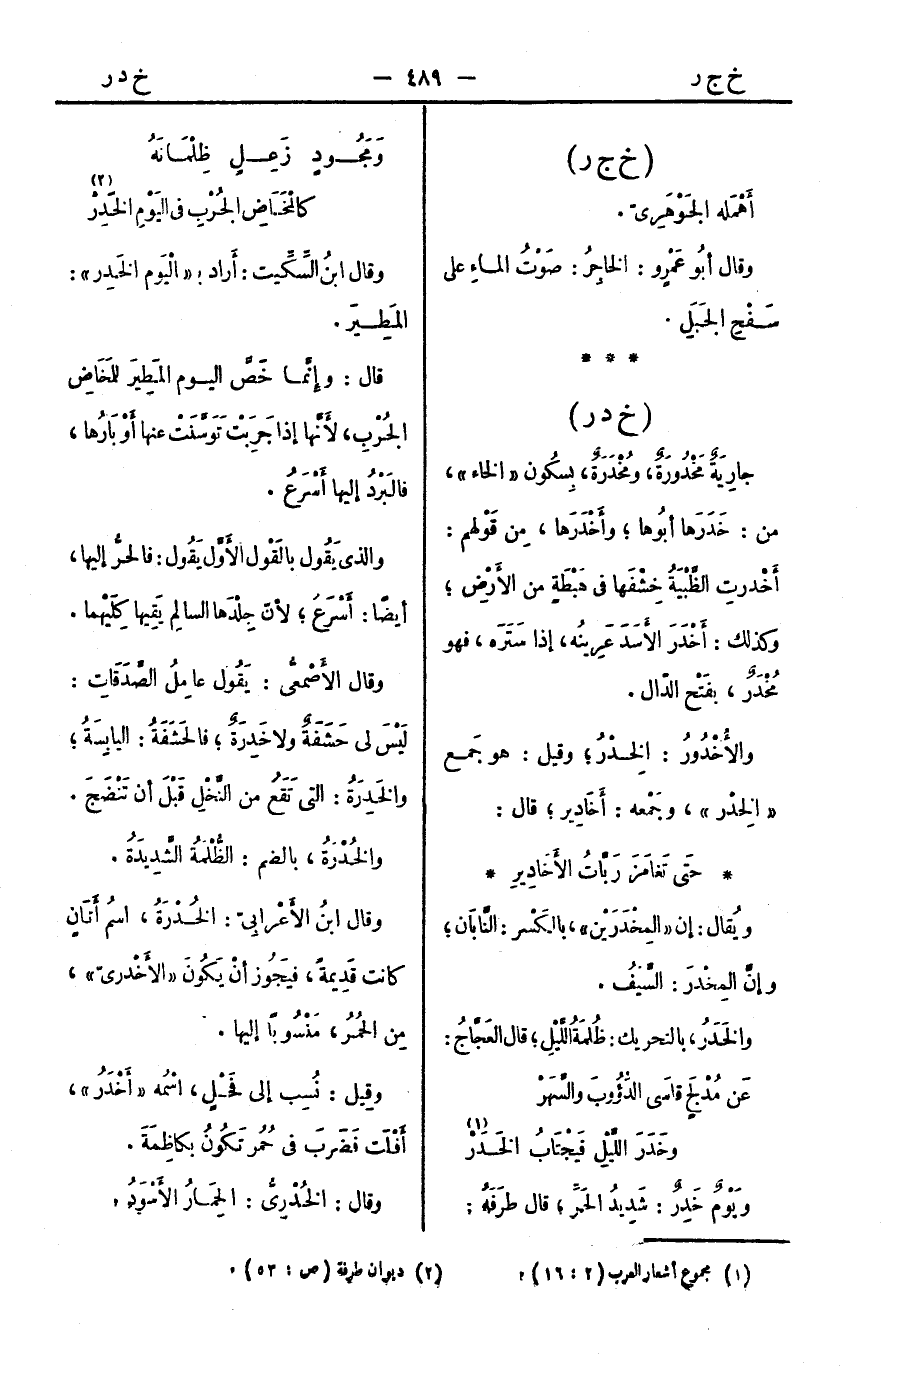 خ ج ر
— ٤٨٩ —
خ د ر
(خ ج ر)
أَهْمَله الجَوْهَرِىّ .
وقال أبُو عَمْرٍو : الخاجِرُ : صَوْتُ المـاءِ على
سَفْحِ الجَبَلِ .
* * *
(خ د ر)
جارِيَةٌ مَخْدُورَةٌ، ومُخْدَرَةٌ، بِسكُون «الخاء» ،
من : خَدَرَها أبُوها ؛ وأَخْدَرَها ، مِن قَوْلهم :
أَخْدرتِ الظَّبْيَةُ خِشْفَها فى هَبْطَةٍ من الأَرْضِ ؛
وكذلك : أَخْدَرَ الأَسَدَ عَرِينُه، إذا سَتَرَه ، فهو
مُخْدَرٌ ، بفَتْح الدّال .
والأُخْدُورُ : الخِـدْرُ ؛ وقيل : هو جَمـع
« الِخدْر » ، وجَمْعه : أَخَادِير ؛ قال :
* حَتى تَغامَزَ رَبَّاتُ الأَخَادِيرِ *
ويُقال : إن «المِخْدَرَيْن»، بالكَسْر : النَّابَان ؛
وإنَّ المِخْدَرَ : السَّيْفُ .
والخَدَرُ، بالتحريك : ظُلمَةُ اللَّيْلِ ؛ قال العَجّاجُ :
عَن مُدْلِجٍ قاسَى الدُّؤُوبَ والسَّهَرْ
وخَدَرَ اللَّيْلِ فَيَجْتَابُ الخَـدَرْ (١)
ويَوْمٌ خَدِرٌ : شَدِيدُ الحَرِّ ؛ قال طَرفَةُ :
وَمَجُـودٍ زَعِـلٍ ظِلْمَـانَهُ
كالمَخَاضِ الجُرْبِ فى اليَوْمِ الخَدِرْ (٢)
وقال ابنُ السِّكِّيت : أَراد بـ « الْيَوم الخَدِر » :
المَطِـيرَ .
قال : وإنَّمـا خَصَّ اليـوم المَطِيرَ للَخَاضِ
الجُرْبِ، لأنَّها إذا جَرِبَتْ تَوَسَّنَتْ عنها أَوْبَارُها ،
فالبَرْدُ إليها أَسْرَعُ .
والذى يَقُول بالقَوْل الأَوَّل يَقُول : فالحرُّ إليها،
أيضًا : أَسْرَعُ ؛ لأنّ جِلْدَها السالِم يَقِيها كِلَيْهما .
وقال الأَصْمعىُّ : يَقُول عامِلُ الصَّدَقَاتِ :
لَيْسَ لى حَشَفَةٌ ولا خَدِرَةٌ ؛ فالحَشَفَةُ : اليابِسَةُ ؛
والخَدِرَةُ : التى تَقَعُ من النَّخْلِ قَبْلَ أن تَنْضَجَ .
والخُدْرَةُ ، بالضم : الظُّلْمَةُ الشَّدِيدَةُ .
وقال ابنُ الأَعْرابِىّ : الخُـدْرَةُ ، اسمُ أَتَانٍ
كانت قَدِيمةً، فيَجُوز أنْ يَكُونَ «الأَخْدرىّ» ،
مِن الحُمُرُ ، مَنْسُوبًا إليها .
وقيل : نُسِب إلى فَحْـلٍ، اسْمُه «أَخْدَرُ» ،
أَفْلَت فَضَرَبَ فى حُمُرٍ تَكُونُ بكاظِمَةَ .
وقال : الخُدْرِىُّ : الحِمَـارُ الأَسْوَدُ .
(١) مجموع أشعار العرب (٢ : ١٦) .
(٢) ديوان طرفة (ص : ٥٣) .